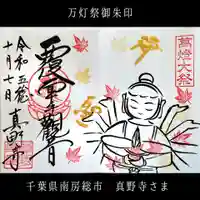 万灯祭御朱印
萬燈大祭
覆面千手観音
令和五歳
十月七日
真野寺
千葉県南房総市 真野寺さま